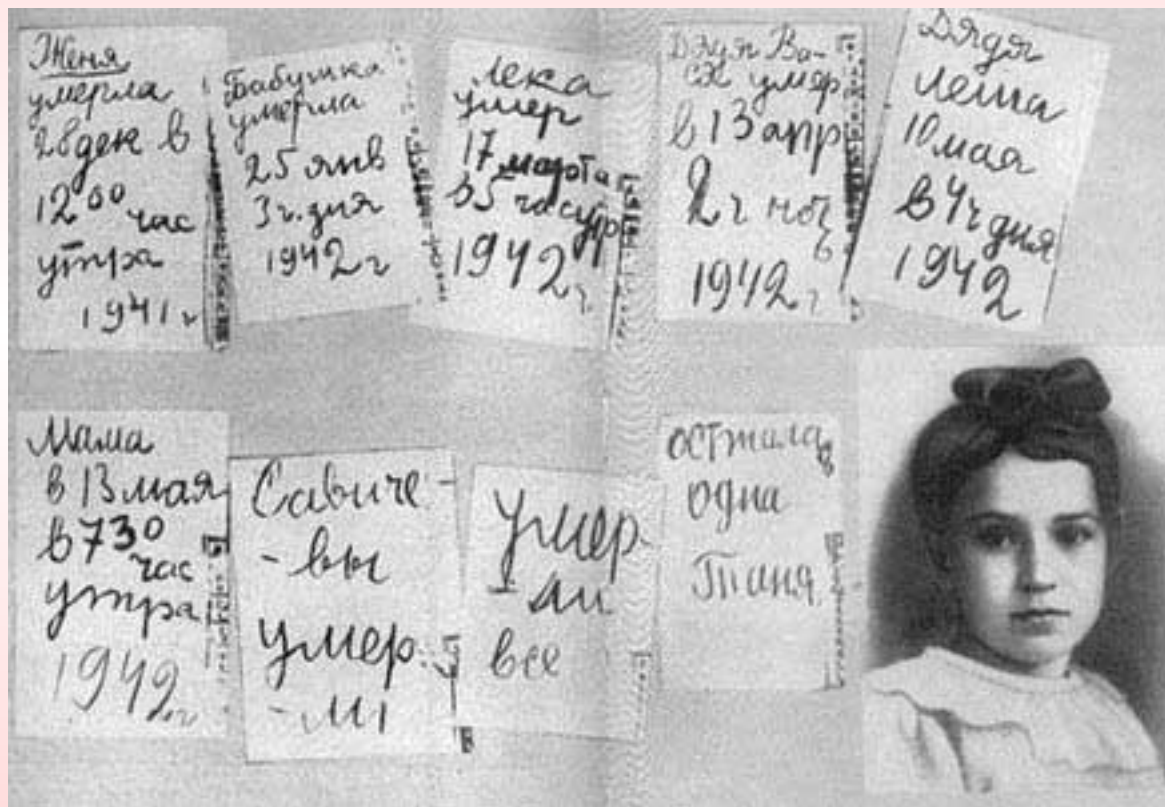 Женя
умерла
28 дек в
12 00 час
утра
1941 г
Бабушка
умерла
25 янв
3 ч. дня
1942 г
Лека
умер
17 марта
в 5 час утр
1942 г.
Дядя Ва-
ся умер
в 13 апр
2 ч ноч
ь
1942 г
Дядя
Леша
10 мая
в 4 ч дня
1942
Мама
в 13 мая
в 7 30
час
утра
1942 г
Савиче-
-вы
умер
-ли
умер
-ли
все
осталась
одна
Таня